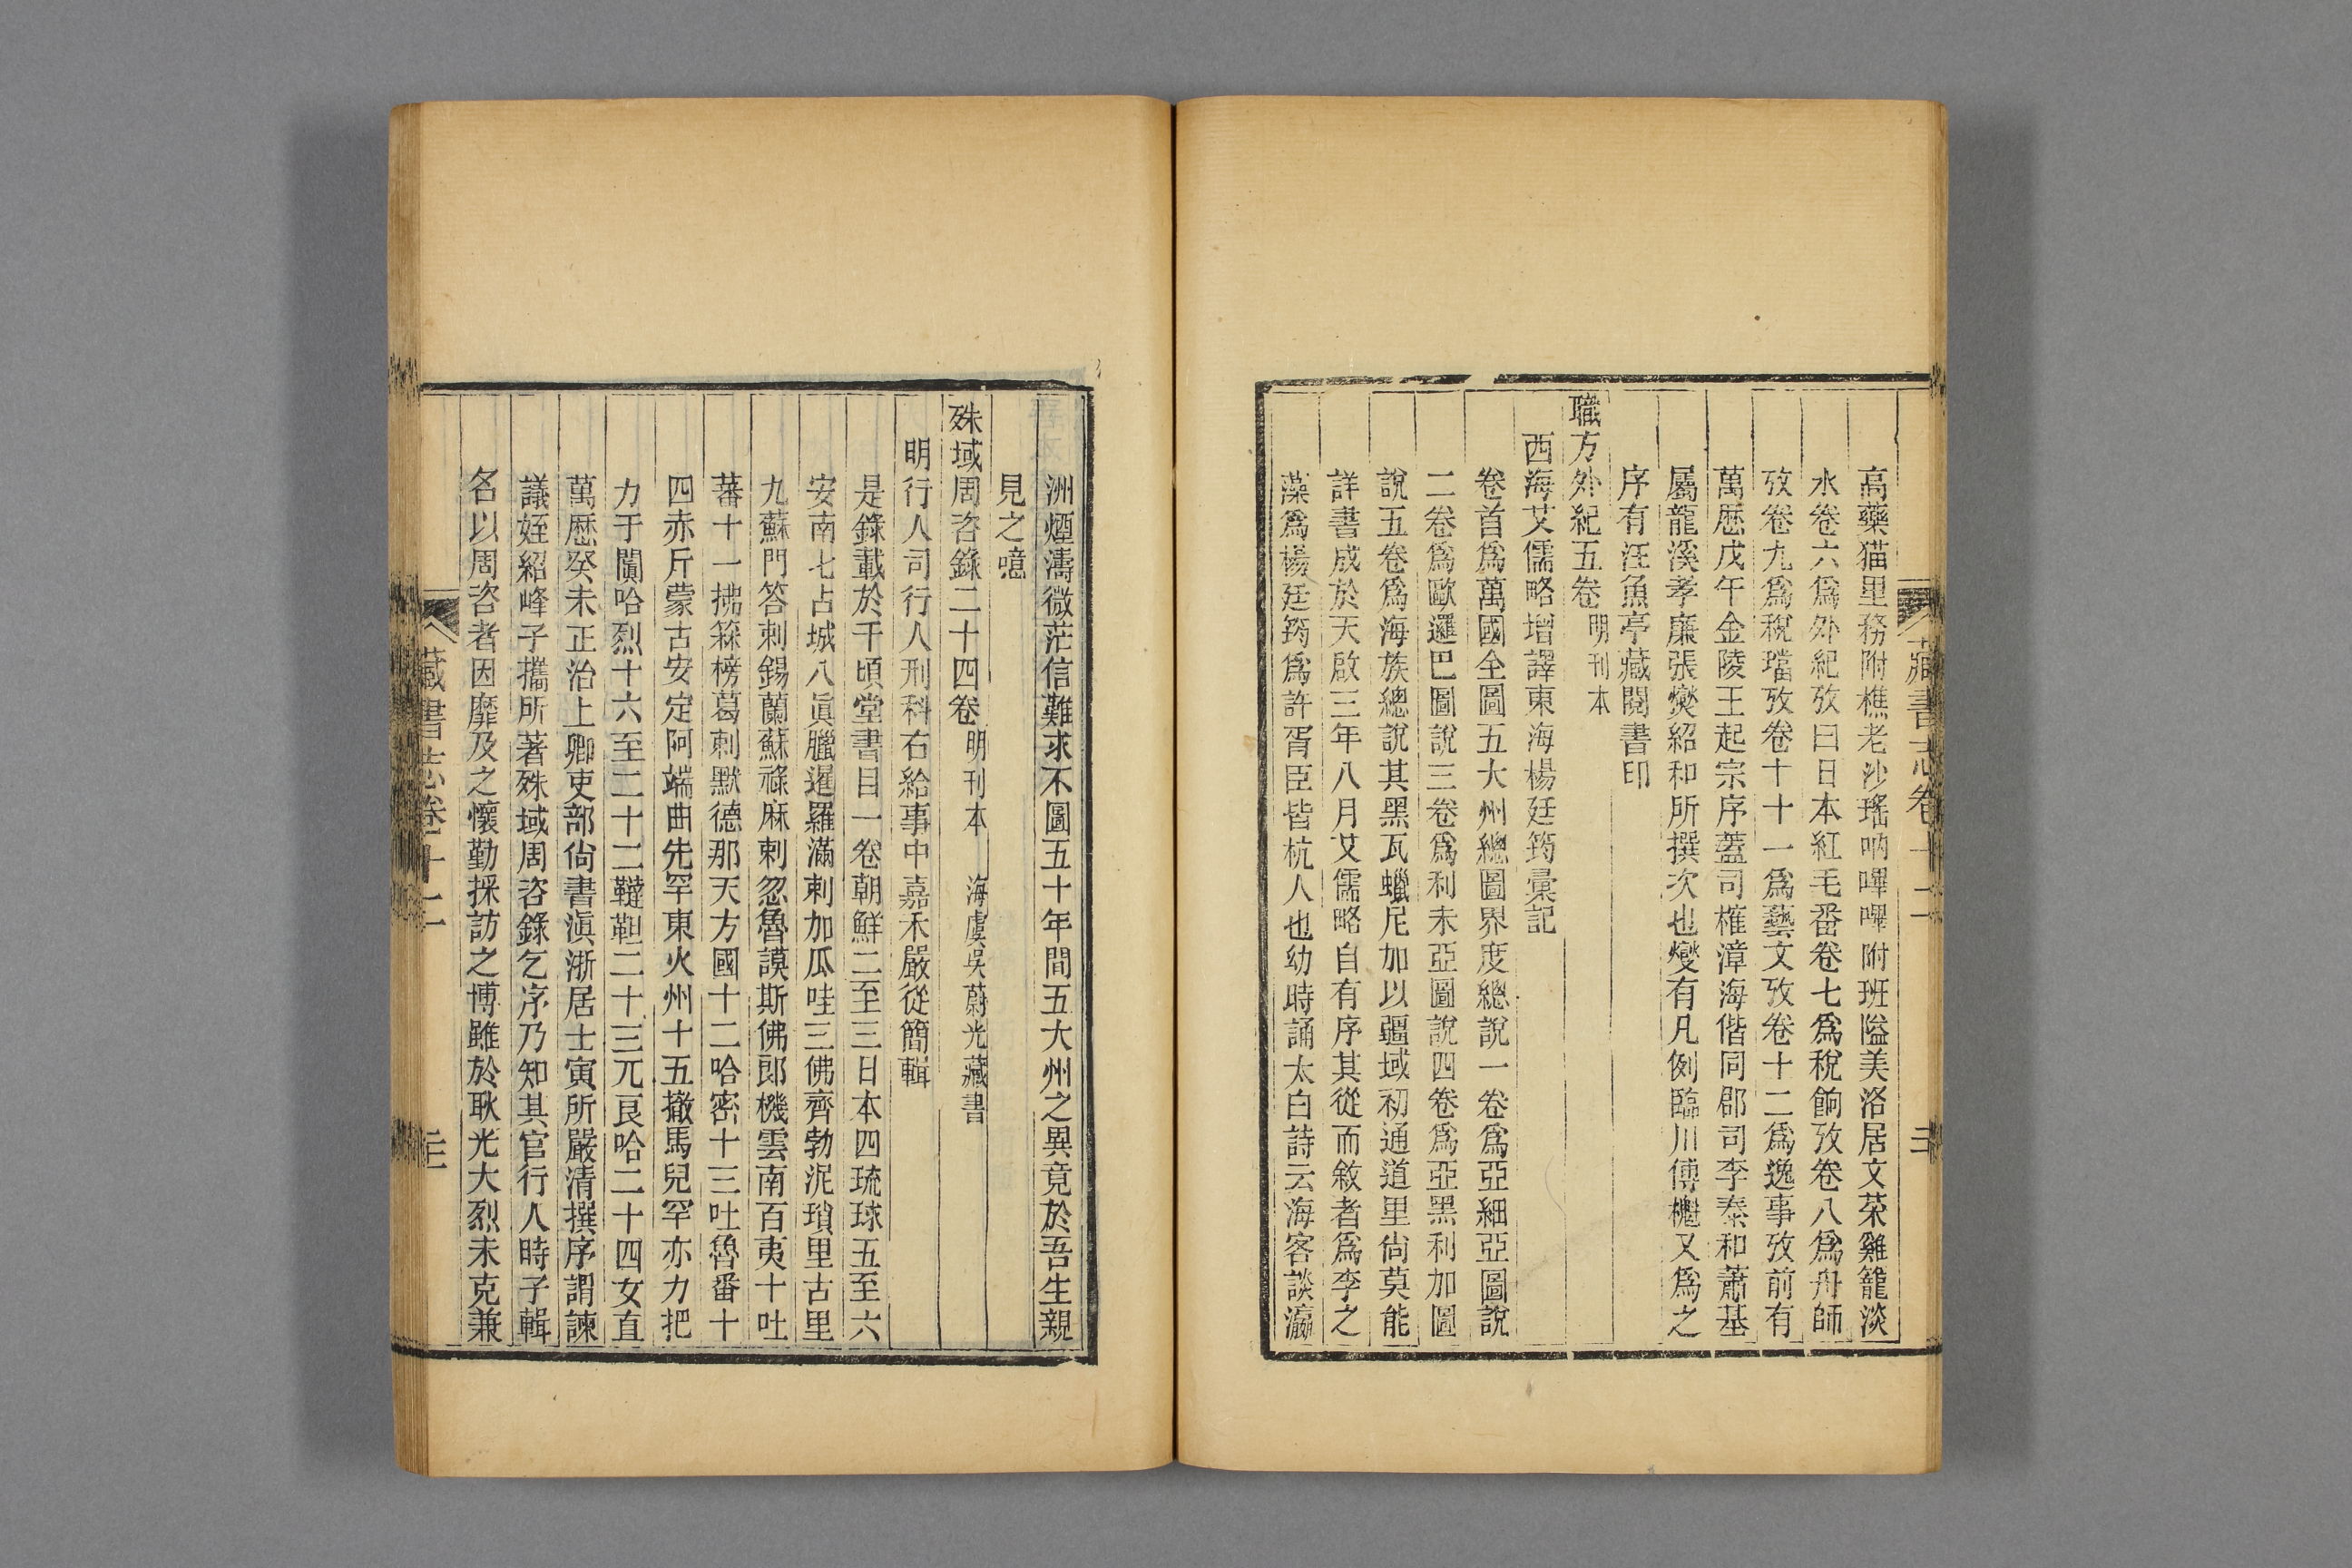 高藥猫里務附樵老沙瑤吶嗶嗶附班隘美洛居文萊雞籠淡
水卷六爲外紀攷曰日本紅毛番卷七爲稅餉攷卷八爲舟師
攷卷九爲稅璫攷卷十十一爲藝文攷卷十二爲逸事攷前有
萬歷戊午金陵王起宗序蓋司榷漳海偕同郡司李泰和蕭基
屬龍溪孝廉張燮紹和所撰次也燮有凡例臨川傅櫆又爲之
序有汪魚亭藏閱書印
職方外紀五卷 明刊本
西海艾儒略增譯東海楊廷筠彙記
卷首爲萬國全圖五大州總圖界度總說一卷爲亞細亞圖說
二卷爲歐邏巴圖說三卷爲利未亞圖說四卷爲亞黑利加圖
說五卷爲海族總說其黑瓦蠟尼加以疆域初通道里尙莫能
詳書成於天啟三年八月艾儒略自有序其從而敘者爲李之
藻爲楊廷筠爲許胥臣皆杭人也幼時誦太白詩云海客談瀛
藏書志卷十二
洲煙濤微茫信難求不圖五十年間五大州之異竟於吾生親
見之噫
殊域周咨錄二十四卷 明刊本 海虞吳蔚光藏書
明行人司行人刑科右給事中嘉禾嚴從簡輯
是錄載於千頃堂書目一卷朝鮮二至三日本四琉球五至六
安南七占城八眞臘暹羅滿剌加瓜哇三佛齊勃泥瑣里古里
九蘇門答刺錫蘭蘇祿麻剌忽魯謨斯佛郎機雲南百夷十吐
蕃十一拂箖榜葛剌默德那天方國十二哈密十三吐魯番十
四赤斤蒙古安定阿端曲先罕東火州十五撒馬兒罕亦力把
力于闐哈烈十六至二十二韃靼二十三兀良哈二十四女直
萬歷癸未正治上卿吏部尙書滇浙居士寅所嚴清撰序謂諫
議姪紹峰子攜所著殊域周咨錄乞序乃知其官行人時子輯
名以周咨者因靡及之懷勤採訪之博雖於耿光大烈未克兼
藏書志卷十二